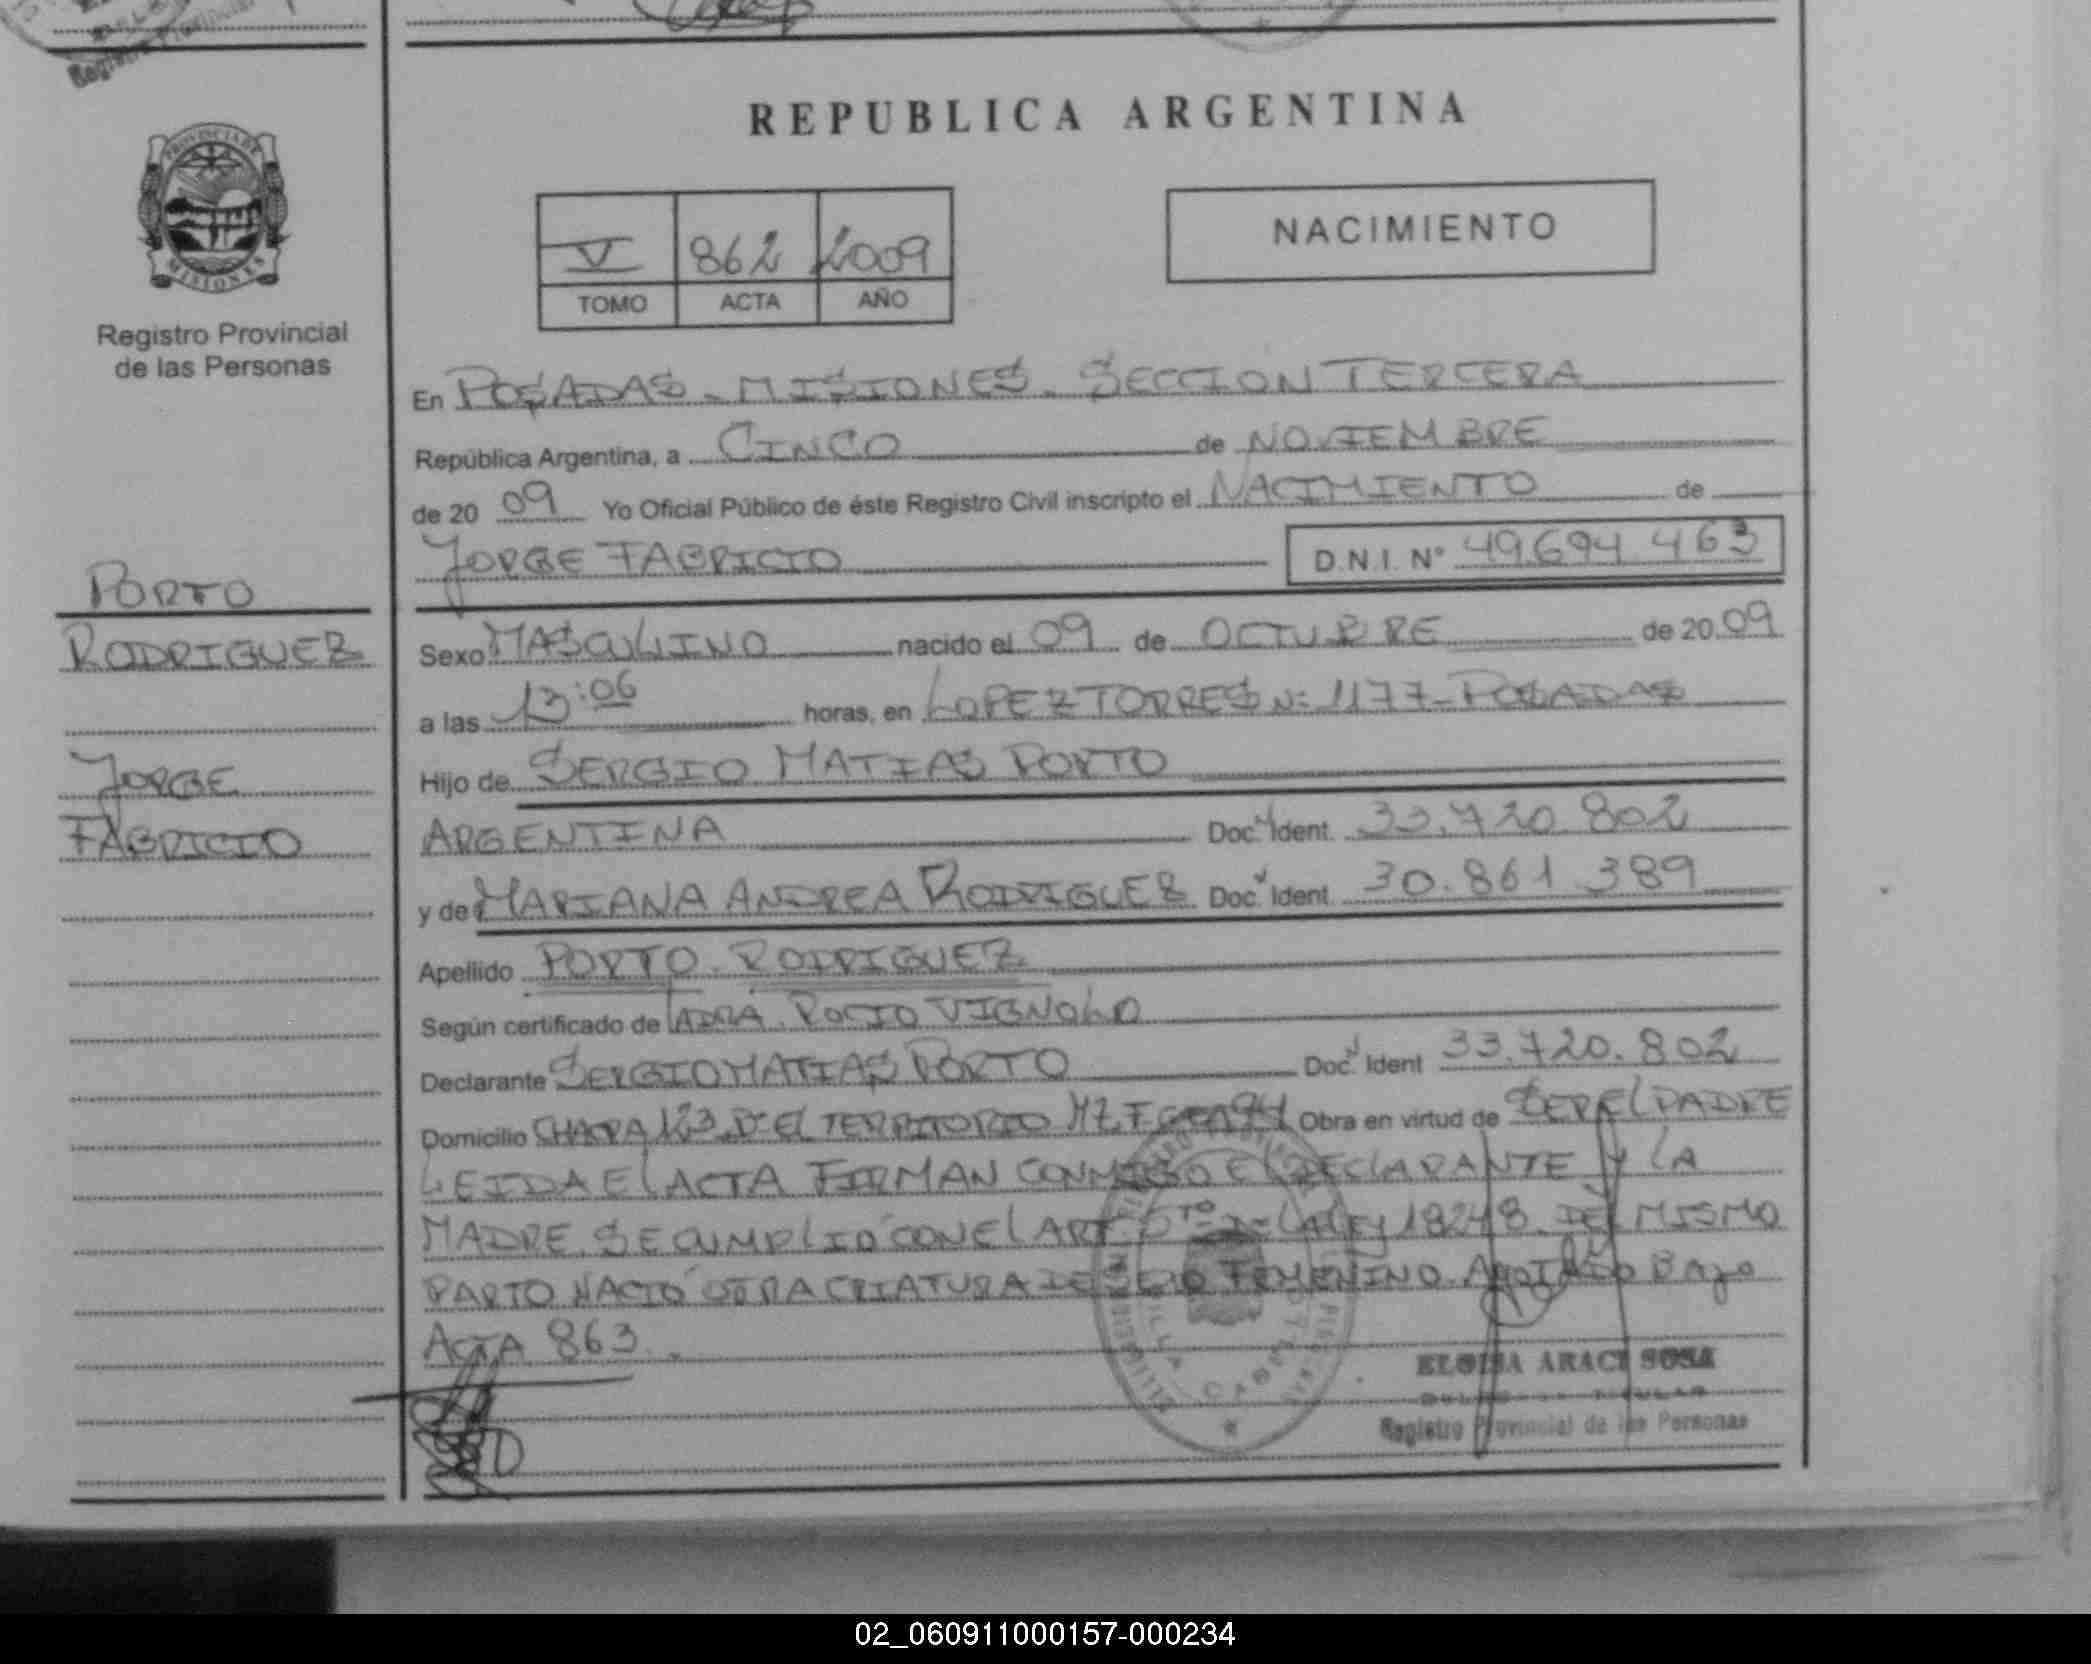 REPUBLICA ARGENTINA
PROVINCIA DE
MISIONES
Registro Provincial
de las Personas
V 862 2009
TOMO ACTA AÑO
NACIMIENTO
En POSADAS - MISIONES - SECCION TERCERA
República Argentina, a CINCO de NOVIEMBRE
de 20 09 Yo Oficial Público de éste Registro Civil inscripto el NACIMIENTO de
JORGE FABRICIO D.N.I. N° 49.694.463
PORTO
RODRIGUEZ
JORGE
FABRICIO
Sexo MASCULINO nacido el 09 de OCTUBRE de 20 09
a las 13:06 horas, en LOPEZ TORRES N: 1177 - POSADAS
Hijo de SERGIO MATIAS PORTO
ARGENTINA Doc. Ident. 33.720.802
y de MARIANA ANDREA RODRIGUEZ Doc. Ident. 30.861.389
Apellido PORTO RODRIGUEZ
Según certificado de ROCIO VIGNOLO
Declarante SERGIO MATIAS PORTO Doc. Ident 33.720.802
Domicilio CHACRA 123 EL TERRITORIO MZ. F Obra en virtud de SER EL PADRE
LEIDA EL ACTA FIRMAN CONMIGO EL DECLARANTE Y LA
MADRE. SE CUMPLIO CON EL ART. 5TO DE LA LEY 18248. DEL MISMO
PARTO NACIO OTRA CRIATURA DE SEXO FEMENINO. ANOTADO BAJO
ACTA 863.
ELOISA ARACI SOSA
Registro Provincial de las Personas
02_060911000157-000234